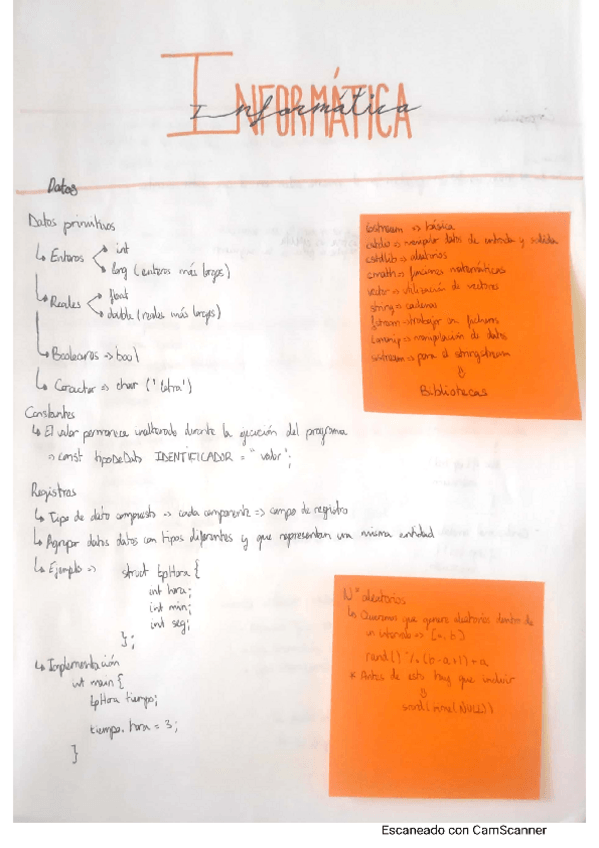 INFORMÁTICA
Informática
Datos
Datos primitivos
↳ Enteros
int
long (enteros más largos)
↳ Reales
float
double (reales más largos)
↳ Booleanos => bool
↳ Caracter => char ('letra')
Constantes
↳ El valor permanece inalterado durante la ejecución del programa
=> const tipoDeDato IDENTIFICADOR = "valor";
Registros
↳ Tipo de dato compuesto => cada componente => campo de registro
↳ Agrupar datos datos con tipos diferentes y que representan una misma entidad
↳ Ejemplo => struct tpHora {
int hora;
int min;
int seg;
};
↳ Implementación
int main {
tpHora tiempo;
tiempo.hora = 3;
}
iostream => básica
cstdio => manipular datos de entrada y salida
cstdlib => aleatorios
cmath => funciones matemáticas
vector => utilización de vectores
string => cadenas
fstream => trabajar con ficheros
iomanip => manipulación de datos
sstream => para el stringstream
Bibliotecas
Nº aleatorios
↳ Queremos que genere aleatorios dentro de
un intervalo => [a, b]
rand() % (b-a+1)+a
* Antes de esto hay que incluir
srand(time(NULL))
Escaneado con CamScanner